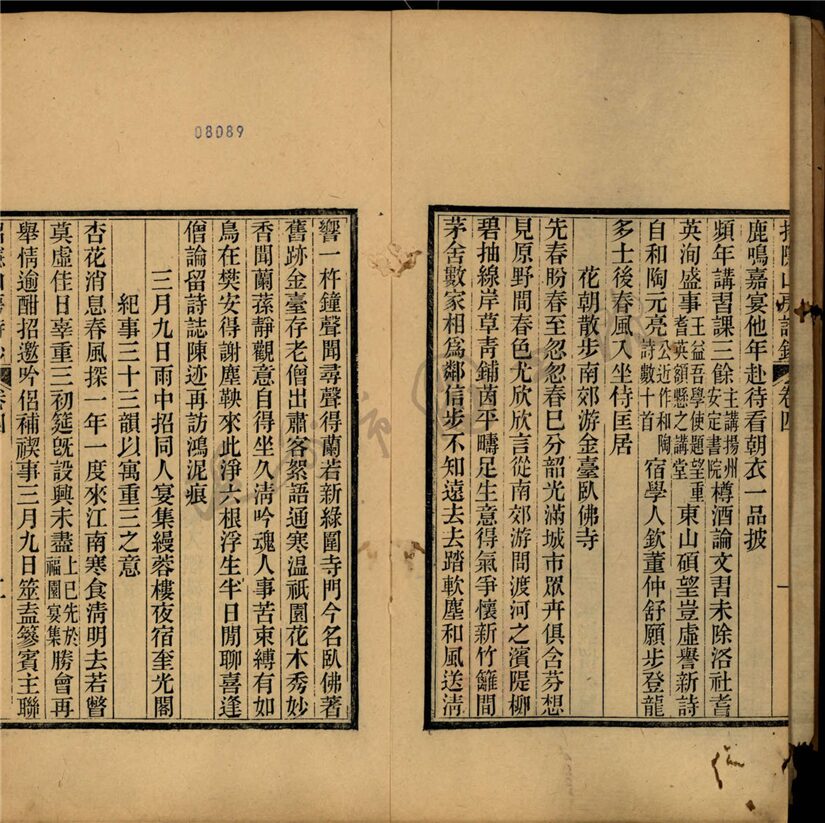 卷四
一
鹿鳴嘉宴他年赴待看朝衣一品披
頻年講習課三餘主講揚州安定書院樽酒論文習未除洛社耆
英洵盛事王益吾學使題望重耆英額懸之講堂東山碩望豈虛譽新詩
自和陶元亮公近作和陶詩數十首宿學人欽董仲舒願步登龍
多士後春風入坐侍匡居
花朝散步南郊游金臺臥佛寺
先春盼春至忽忽春巳分韶光滿城市眾卉俱含芬想
見原野間春色尤欣欣言從南郊游問渡河之濱隄柳
碧抽線岸草靑鋪茵平疇足生意得氣爭懷新竹籬間
茅舍數家相爲鄰信步不知遠去去踏軟塵和風送淸
08089
響一杵鐘聲聞尋聲得蘭若新綠圍寺門今名臥佛著
舊跡金臺存老僧出肅客絮語通寒溫祇園花木秀妙
香聞蘭蓀靜觀意自得坐久淸吟魂人事苦束縛有如
鳥在樊安得謝塵鞅來此淨六根浮生半日閒聊喜逢
僧論留詩誌陳迹再訪鴻泥痕
三月九日雨中招同人宴集縵蓉樓夜宿奎光閣
紀事三十三韻以寓重三之意
杏花消息春風探一年一度來江南寒食淸明去若瞥
莫虛佳日辜重三初筵旣設興未盡上巳先於福園宴集勝會再
舉情逾酣招邀吟侶補禊事三月九日筮盍簪賓主聯